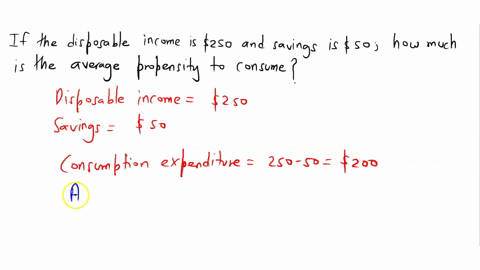 If the disposable income is $250 and savings is $50, how much
is the average propensity to consume?
Disposable income = $250
Savings = $50
Consumption expenditure = 250-50 = $200
A